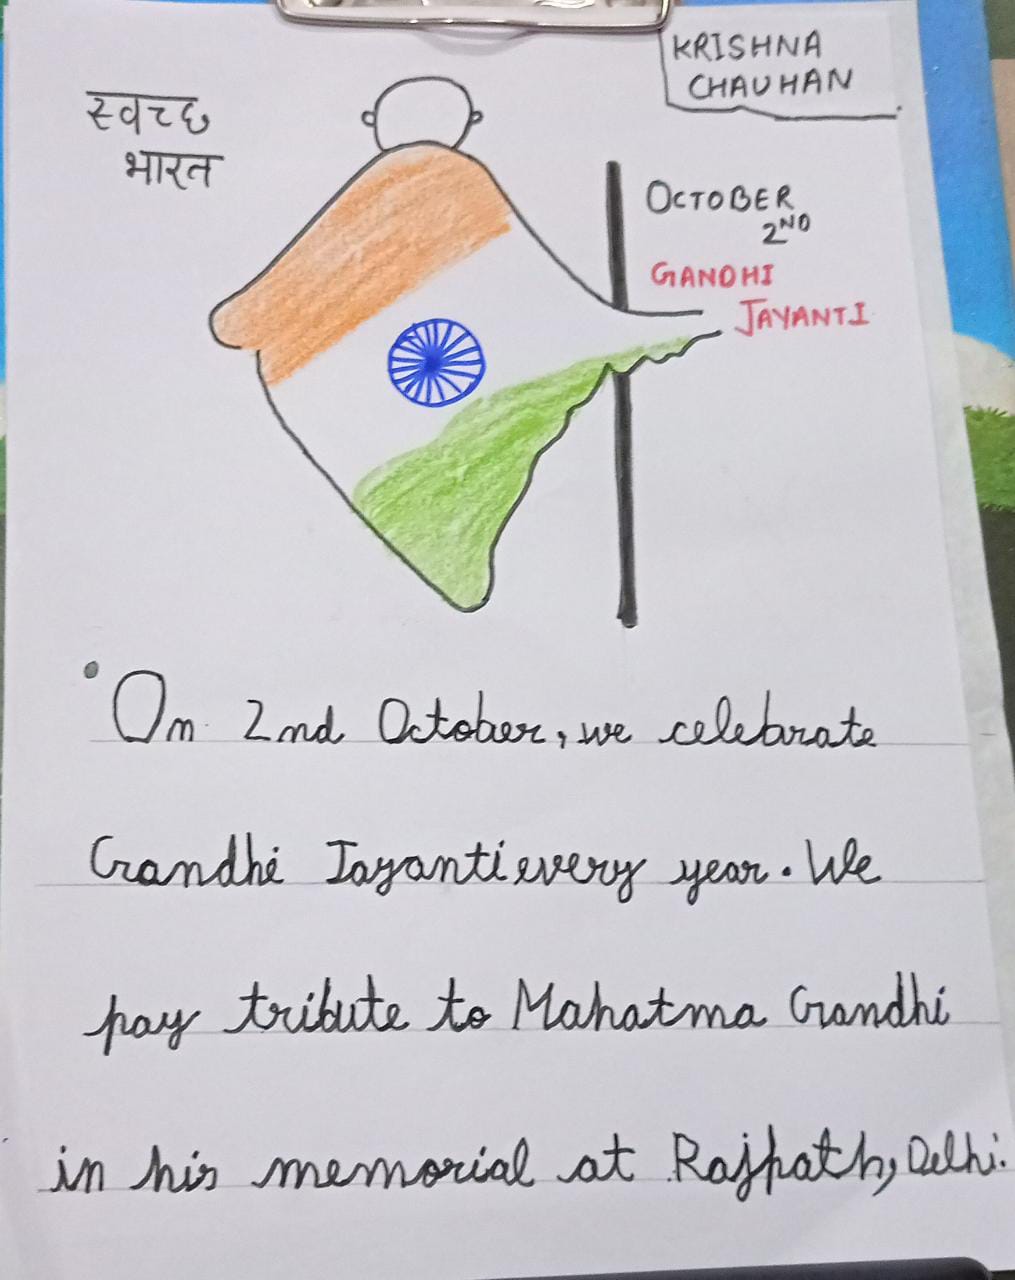 KRISHNA
CHAUHAN
स्वच्छ
भारत
OCTOBER
2ND
GANDHI
JAYANTI
On 2nd October, we celebrate
Gandhi Jayanti every year. We
pay tribute to Mahatma Gandhi
in his memorial at Rajpath, Delhi.